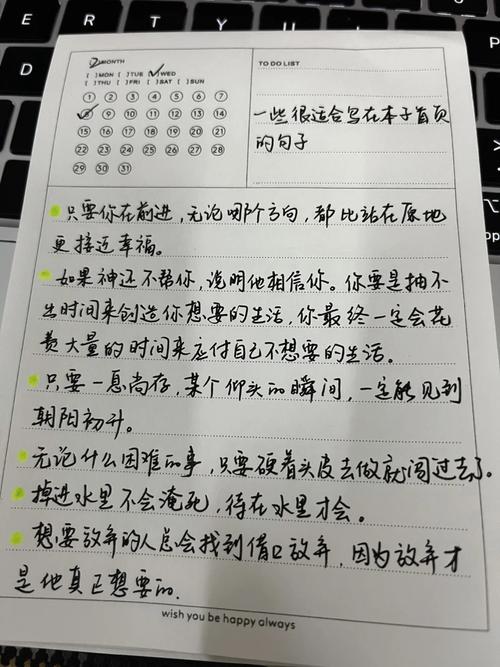 2 MONTH
[ ] MON [ ] TUE [✓] WED
[ ] THU [ ] FRI [ ] SAT [ ] SUN
1 2 3 4 5 6 7
8 9 10 11 12 13 14
15 16 17 18 19 20 21
22 23 24 25 26 27 28
29 30 31
TO DO LIST
一些很适合写在本子首页
的句子
只要你在前进，无论哪个方向，都比站在原地
更接近幸福。
如果神还不帮你，说明他相信你。你要是抽不
出时间来创造你想要的生活，你最终一定会花
费大量的时间来应付自己不想要的生活。
只要一息尚存，某个仰头的瞬间，一定能见到
朝阳初升。
无论什么困难的事，只要硬着头皮去做就闯过去了.
掉进水里不会淹死，待在水里才会。
想要放弃的人总会找到借口放弃，因为放弃才
是他真正想要的.
wish you be happy always
D
E
R
T
Y
U